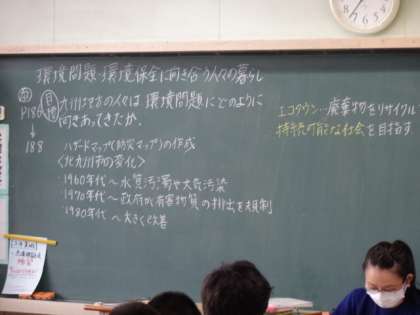 環境問題・環境保全に向き合う人々の暮らし
P186
↓
188
目標
九州地方の人々は環境問題にどのように
向きあってきたか.
ハザードマップ(防災マップ)の作成
<北九州市の変化>
・1960年代〜水質汚濁や大気汚染
・1970年代〜政府が有害物質の排出を規制
・1980年代〜大きく改善
エコタウン…廃棄物をリサイクル
持続可能な社会を目指す